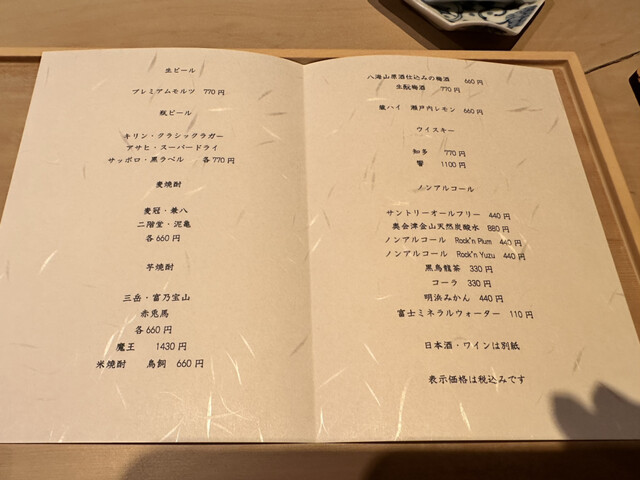 生ビール
プレミアムモルツ 770円
瓶ビール
キリン・クラシックラガー
アサヒ・スーパードライ
サッポロ・黒ラベル 各770円
麦焼酎
麦冠・兼八
二階堂・泥亀
各660円
芋焼酎
三岳・富乃宝山
赤兎馬
各660円
魔王 1430円
米焼酎 鳥飼 660円
八海山原酒仕込みの梅酒 660円
生酛梅酒 770円
酎ハイ 瀬戸内レモン 660円
ウイスキー
知多 770円
響 1100円
ノンアルコール
サントリーオールフリー 440円
奥会津金山天然炭酸水 880円
ノンアルコール Rock'n Plum 440円
ノンアルコール Rock'n Yuzu 440円
黒烏龍茶 330円
コーラ 330円
明浜みかん 440円
富士ミネラルウォーター 110円
日本酒・ワインは別紙
表示価格は税込みです